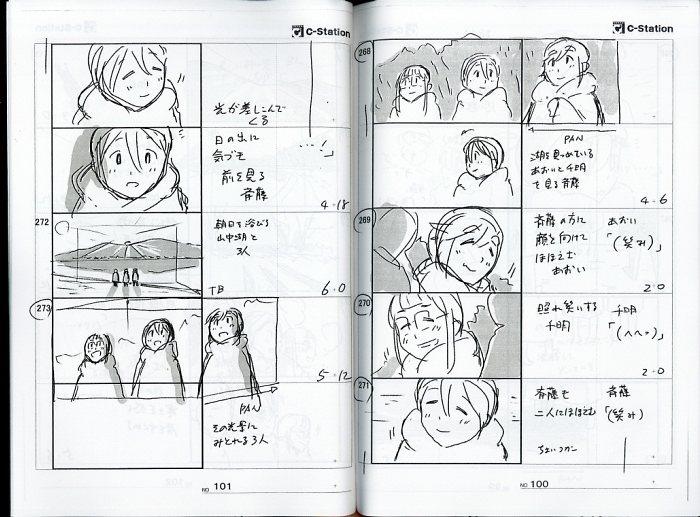 C-Station
268
PAN
湖を見つめている
あおいと千明
を見る斉藤
4・6
269
斉藤の方に
顔を向けて
ほほえむ
あおい
あおい
「(笑み)」
2・0
270
照れ笑いする
千明
千明
「(へへっ)」
2・0
271
斉藤も
二人にほほえむ
斉藤
「(笑み)
ちょいつかー
NO 100
C-Station
光が差しこんで
くる
日の出に
気づき
前を見る
斉藤
4・18
272
朝日を浴びる
山中湖と
3人
T.B
6・0
273
5・12
PAN
その光景に
みとれる3人
NO 101